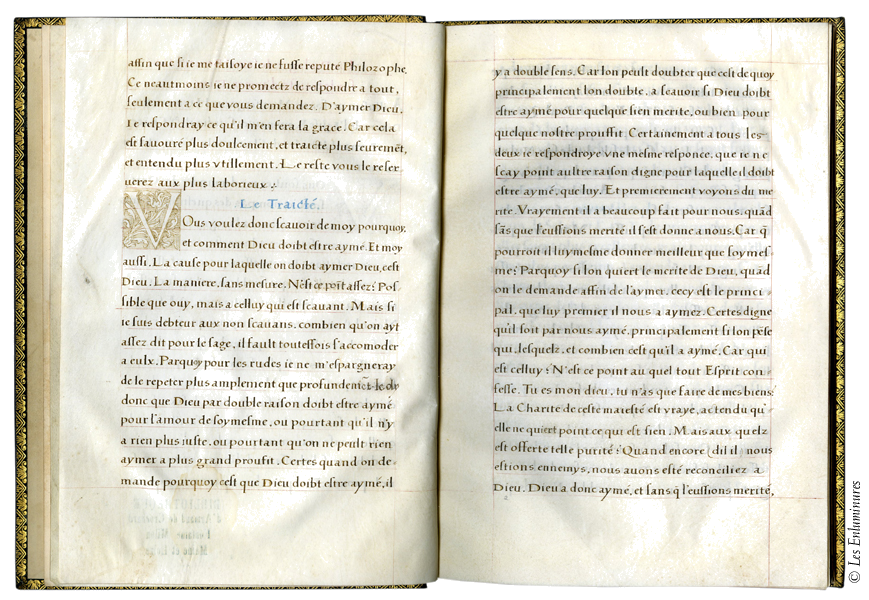 affin que si ie me taisoye ie ne fusse reputé Philozophe.
Ce neautmoins ie ne promectz de respondre a tout,
seulement a ce que vous demandez. D'aymer Dieu,
Ie respondray ce qu'il m'en fera la grace. Car cela
est sauouré plus doulcement, et traicté plus seuremēt,
et entendu plus vtillement. Le reste vous le reser
uerez aux plus laborieux.
Le Traicté.
Vous voulez donc scauoir de moy pourquoy,
et comment Dieu doibt estre aymé. Et moy
aussi. La cause pour laquelle on doibt aymer Dieu, cest
Dieu. La maniere, sans mesure. N'est ce poīt assez? Pos
sible que ouy, mais a celluy qui est scauant. Mais si
ie suis debteur aux non scauans, combien qu'on ayt
assez dit pour le sage, il fault toutesfois s'accomoder
a eulx. Parquoy pour les rudes ie ne m'espargneray
de le repeter plus amplement que profundemēt. Ie dy
donc que Dieu par double raison doibt estre aymé
pour l'amour de soymesme, ou pourtant qu'il n'y
a rien plus iuste, ou pourtant qu'on ne peult rien
aymer a plus grand proufit. Certes quand on de-
mande pourquoy cest que Dieu doibt estre aymé, il
y a double sens. Car lon peult doubter que cest de quoy
principalement lon double, a scauoir si Dieu doibt
estre aymé pour quelque sien merite, ou bien pour
quelque nostre prouffit. Certainement a tous les-
deux ie respondroye vne mesme responce, que ie ne
scay point aultre raison digne pour laquelle il doibt
estre aymé, que luy. Et premierement voyons du me
rite. Vrayement il a beaucoup fait pour nous, quād
sās que l'eussions merité il s'est donne a nous. Car q̄
pourroit il luymesme donner meilleur que soymes-
me? Parquoy si lon quiert le merite de Dieu, quād
on le demande affin de l'aymer, cecy est le princi
pal, que luy premier il nous a aymez. Certes digne
qu'il soit par nous aymé, principalement si lon pēse
qui, lesquelz, et combien cest qu'il a aymé. Car qui
est celluy? N'est ce point au quel tout Esprit con-
fesse, Tu es mon dieu, tu n'as que faire de mes biens?
La Charité de ceste maiesté est vraye, actendu qu'
elle ne quiert point ce qui est sien. Mais aux quelz
est offerte telle purité? Quand encore (dil il) nous
estions ennemys, nous auons esté reconciliez a
Dieu. Dieu a donc aymé, et sans q̄ l'eussions merité,
© Les Enluminures